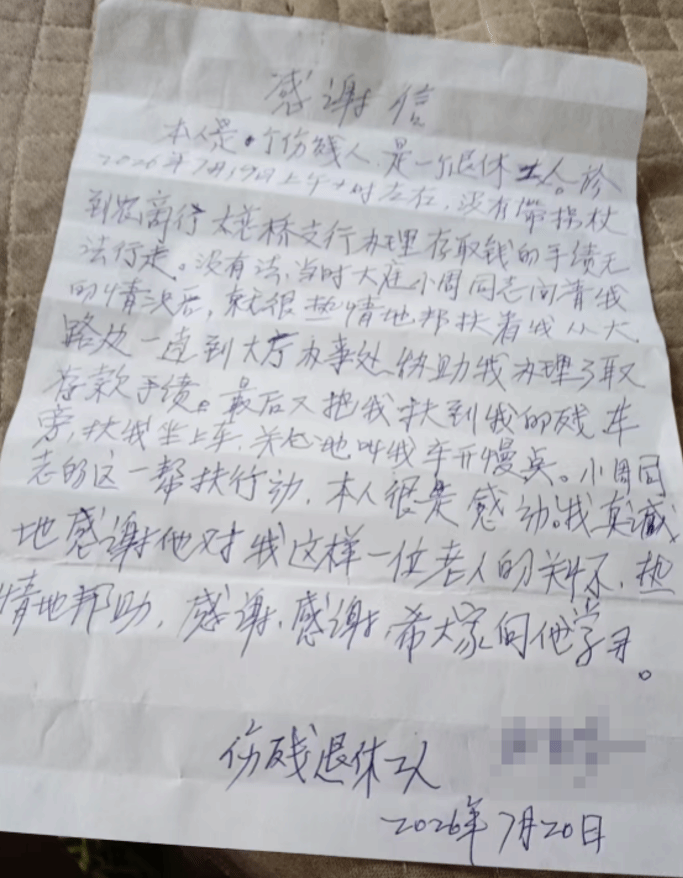 感谢信
本人是一个伤残人，是一个退休工人。於
2026年7月19日上午十时左右，没有带拐杖
到农商行大巷桥支行办理存取钱的手续无
法行走。没有法，当时大庭小周同志问着我
的情况后，就很热情地帮扶着我从大
路边一直到大厅办事处协助我办理了取
存款手续。最后又把我扶到我的残车
旁，扶我坐上车，关心地叫我车开慢点。小周同
志的这一帮扶行动，本人很是感动。我真诚
地感谢他对我这样一位老人的关怀，热
情地帮助，感谢，感谢，希大家向他学习。
伤残退休工人
2026年7月20日